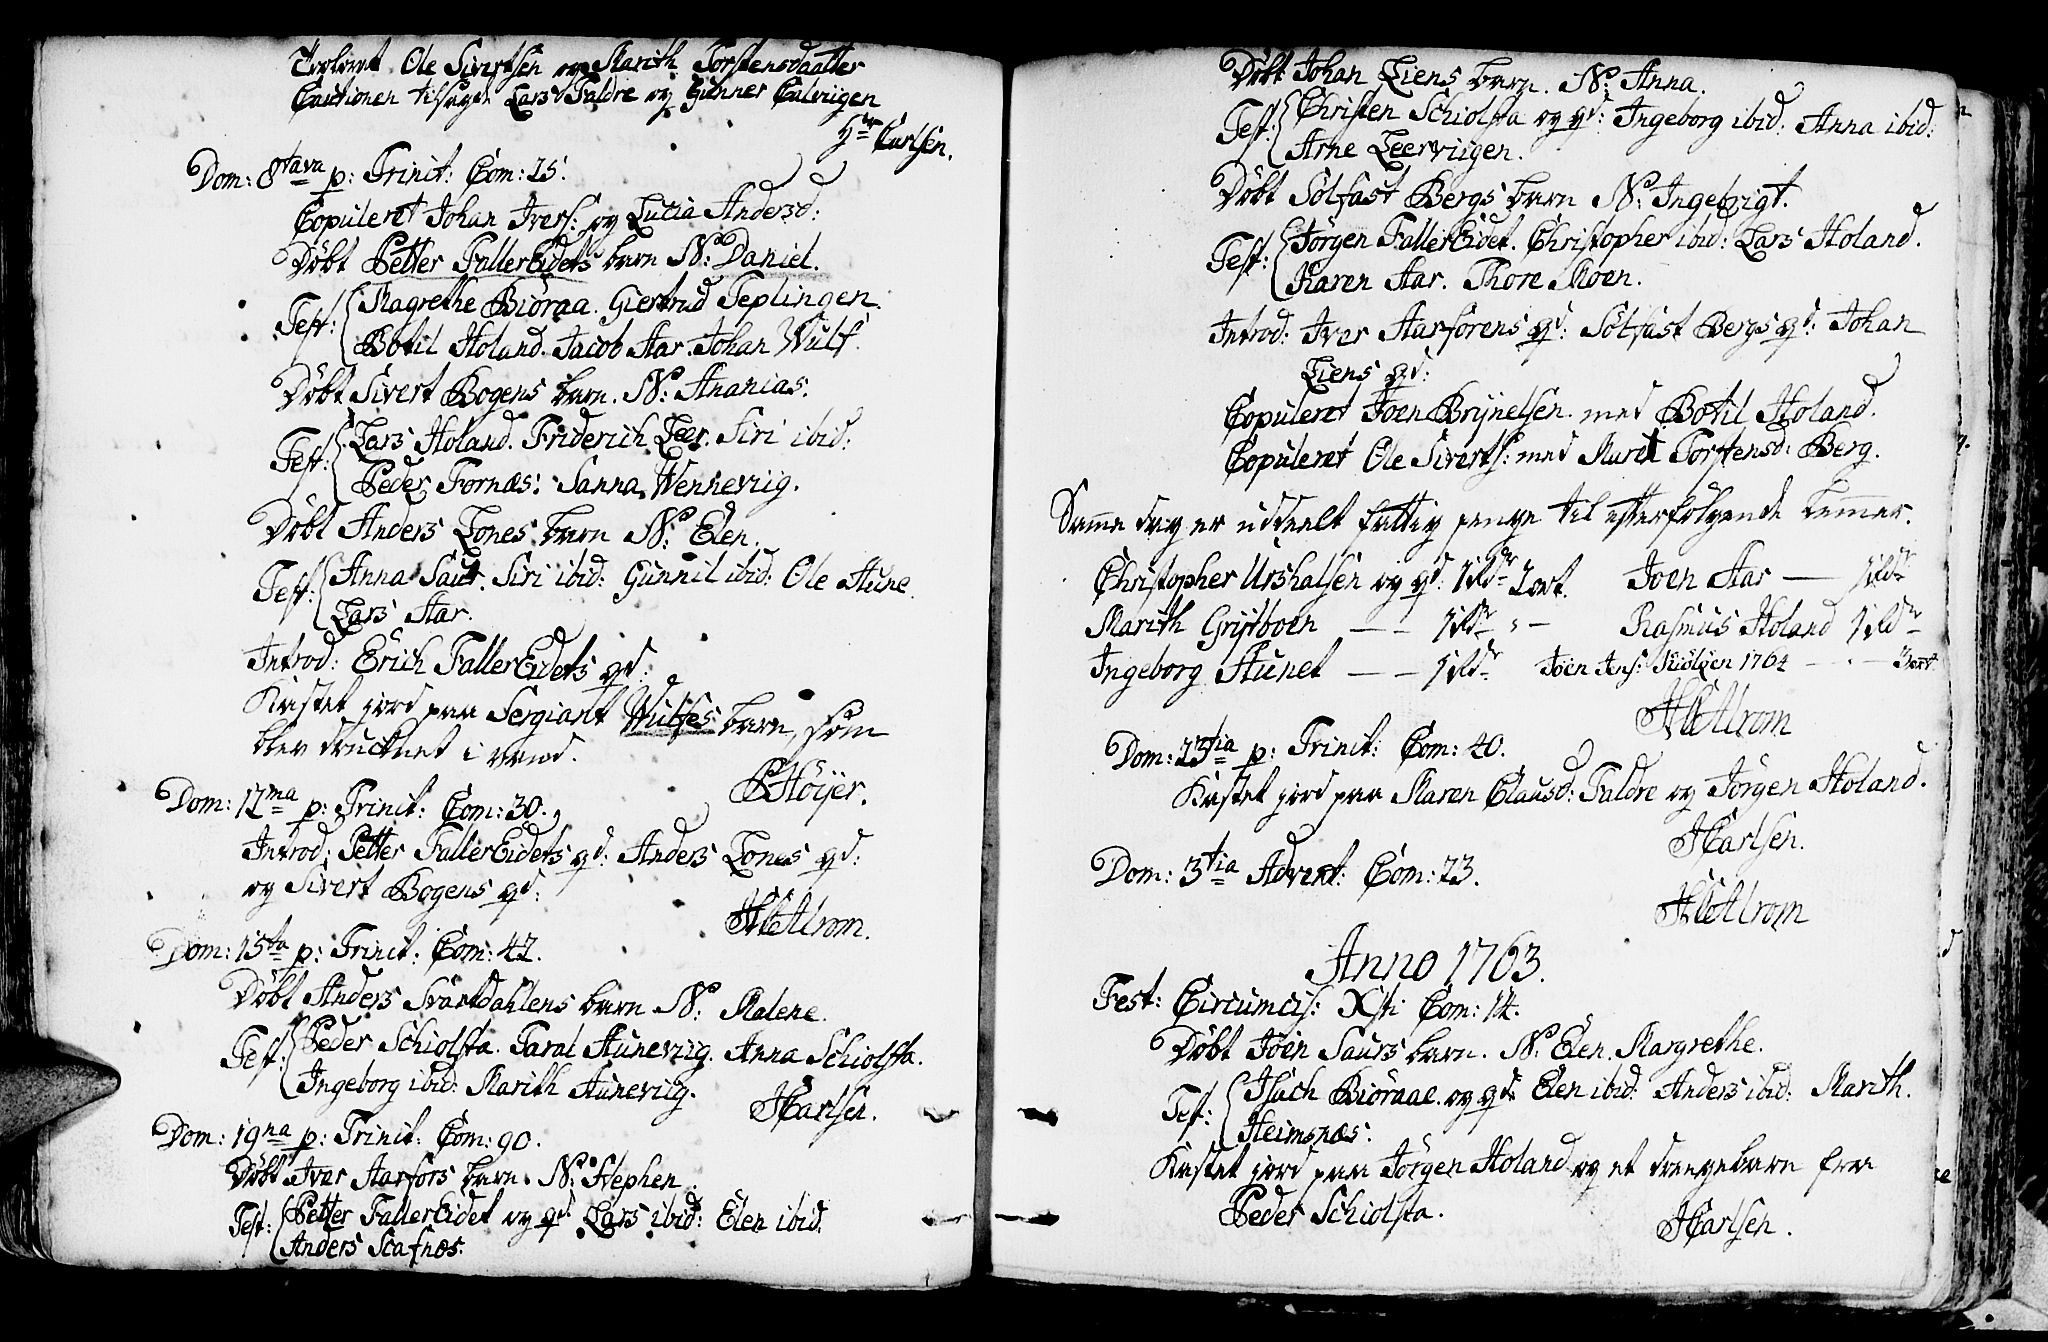 Trolovet Ole Sivertsen og Marith Torstensdaatter
Cautionen tilsagde Lars Faldre og Gunner Calviigen
Hr Carlsen.
Dom: 8tava p: Trinit: Com: 25.
Copuleret Johan Ivers: og Lucia Andersd:
Döbt Petter FallerEidets barn N: Daniel.
Test: Magrethe Biöraa. Giertrud Teplingen.
Botil Holand. Jacob Aar. Johan Wulf.
Döbt Sivert Bogens barn. N: Ananias.
Test: Lars Holand. Friderich Leer. Siri ibid:
Peder Fornæs. Sanna Wennevig.
Döbt Anders Lones barn N: Elen.
Test: Anna Saur. Siri ibid: Gunnil ibid: Ole Aune.
Lars Aar.
Introd: Erich FallerEidets qd:
Kastet jord paa Sergiant Wulfes barn, som
blev drucknet i vand.
Höyer.
Dom: 12ma p: Trinit: Com: 30.
Introd: Petter FallerEidets qd: Anders Lones qd:
og Sivert Bogens qd:
Alrom.
Dom: 15ta p: Trinit: Com: 42.
Döbt Anders Svartdahlens barn N: Malene.
Test: Peder Schiolsta. Taral Aunevig. Anna Schiolsta.
Ingeborg ibid: Marith Aunevig.
HCarlsen.
Dom: 19na p: Trinit: Com: 90.
Döbt Iver Aarfors barn. N: Stephen.
Test: Petter FallerEidet og qd: Lars ibid: Elen ibid.
Anders Scafnæs.
Döbt Johan Liens barn. N: Anna.
Test: Christen Schiolsta og qd: Ingeborg ibid: Anna ibid:
Arne Leerviigen.
Döbt Sölfast Bergs barn N: Ingebrigt.
Test: Jörgen FallerEidet. Christopher ibid: Lars Holand.
Karen Aar. Thore Moen.
Introd: Iver Aarforens qd: Sölfast Bergs qd: Johan
Liens qd:
Copuleret Joen Brynelsen med Botil Holand.
Copuleret Ole Siverts: med Maret Torstensd: Berg.
Samme dag er uddeelt fattig penge til efterfölgende Lemmer.
Christopher Urshalsen og qd: 1 rdr 2 ort. Joen Aar — 1 rdr
Marith Gristboen — — 1 rdr „ — Rasmus Holand 1 rdr
Ingeborg Aunet — — 1 rdr Joen Jens: 1762 — 3 ort
Alrom
Dom: 23tia p: Trinit: Com: 40.
Kastet jord paa Maren Clausd: Faldre og Jörgen Holand.
HCarlsen.
Dom: 3tia Advent: Com: 23.
Alrom
Anno 1763.
Fest: Circumcis: Xsti Com: 14.
Döbt Joen Saurs barn. N: Elen Margrethe.
Test: Isach Biöraae og qd: Elen ibid: Anders ibid: Marith.
Heimsnæs.
Kastet jord paa Jörgen Holand og et drengebarn fra
Peder Schiolsta.
HCarlsen.